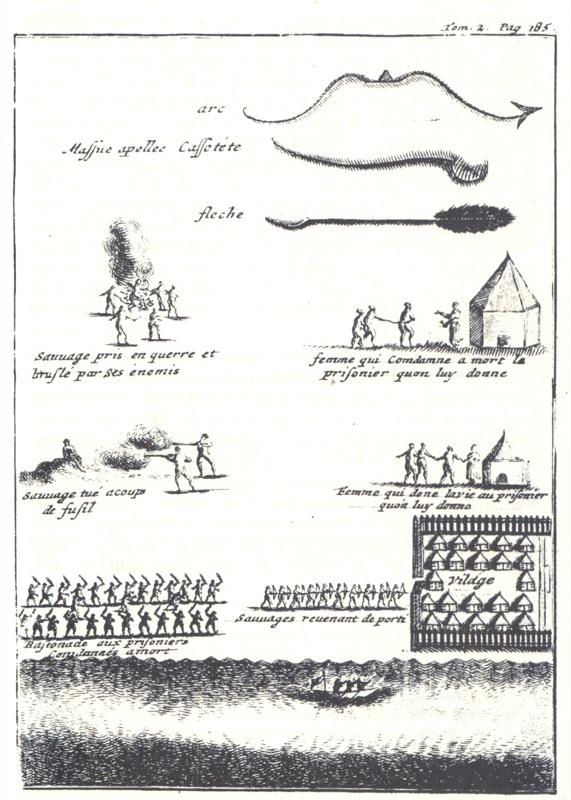 Tom. 2. Pag 185.
arc
Massue apellee Cassetéte
fleche
Sauuage pris en guerre et
bruslé par ses enemis
femme qui Comdamne a mort le
prisonier quon luy donne
Sauuage tué a coups
de fusil
Femme qui done la vie au prisonier
quon luy donne
Vilage
Bastonade aux prisoniers
Comdannés a mort
Sauuages reuenant de